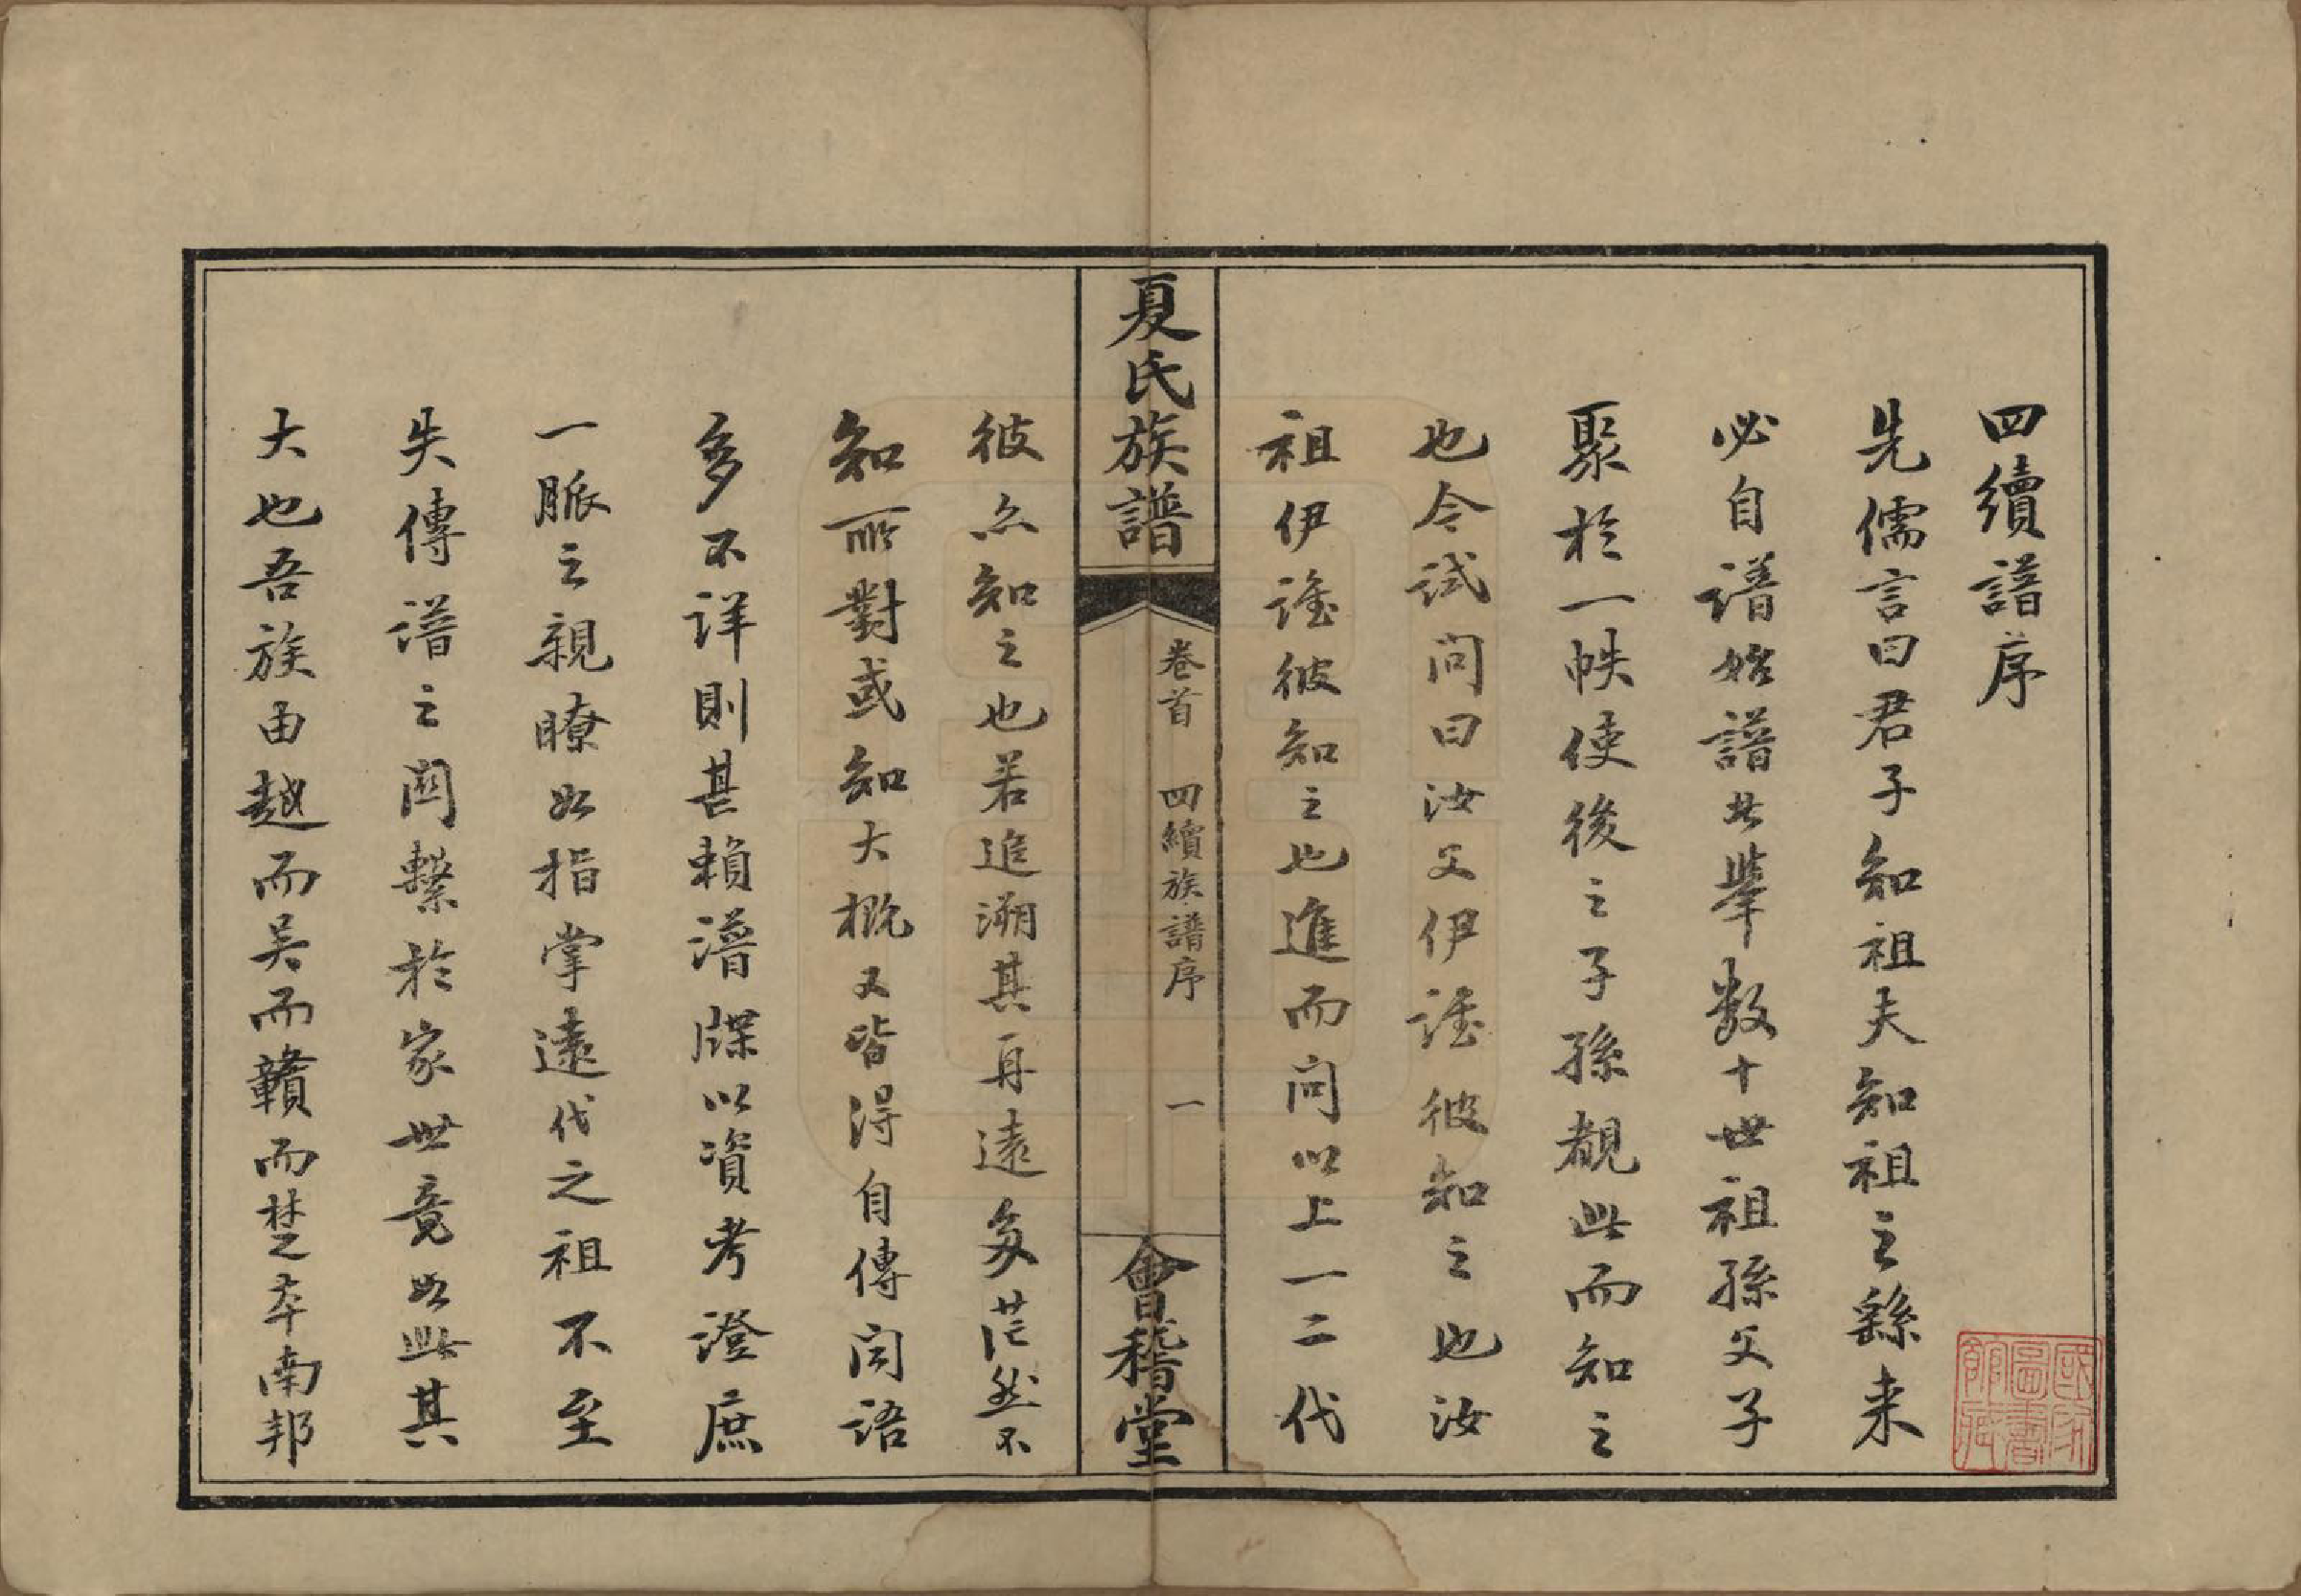 四續譜序
先儒言曰君子知祖夫知祖之繇来
必自譜始譜者舉数十世祖孫父子
聚於一帙使後之子孫覩此而知之
也令試问曰汝父伊誰彼知之也汝
祖伊誰彼知之也進而问以上一二代
夏氏族譜
卷首 四續族譜序 一
會稽堂
彼亦知之也若追溯其再遠多茫然不
知所對或知大概又皆得自傳闻語
多不详則甚賴譜牒以資考證庶
一脈之親瞭如指掌遠代之祖不至
失傳譜之関繫於家世竟如此其
大也吾族由越而吴而贛而楚卒南邦
國家圖書館藏